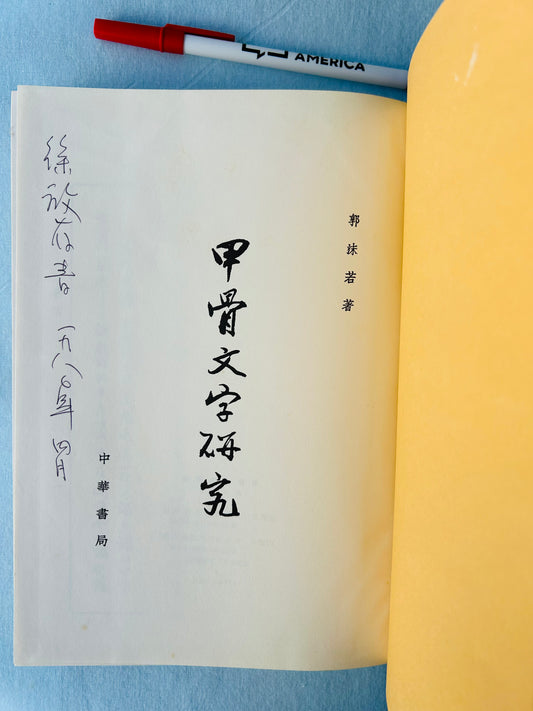 AMERICA
郭沫若著
甲骨文字研究
中華書局
徐 存書 一九八〇年 四月